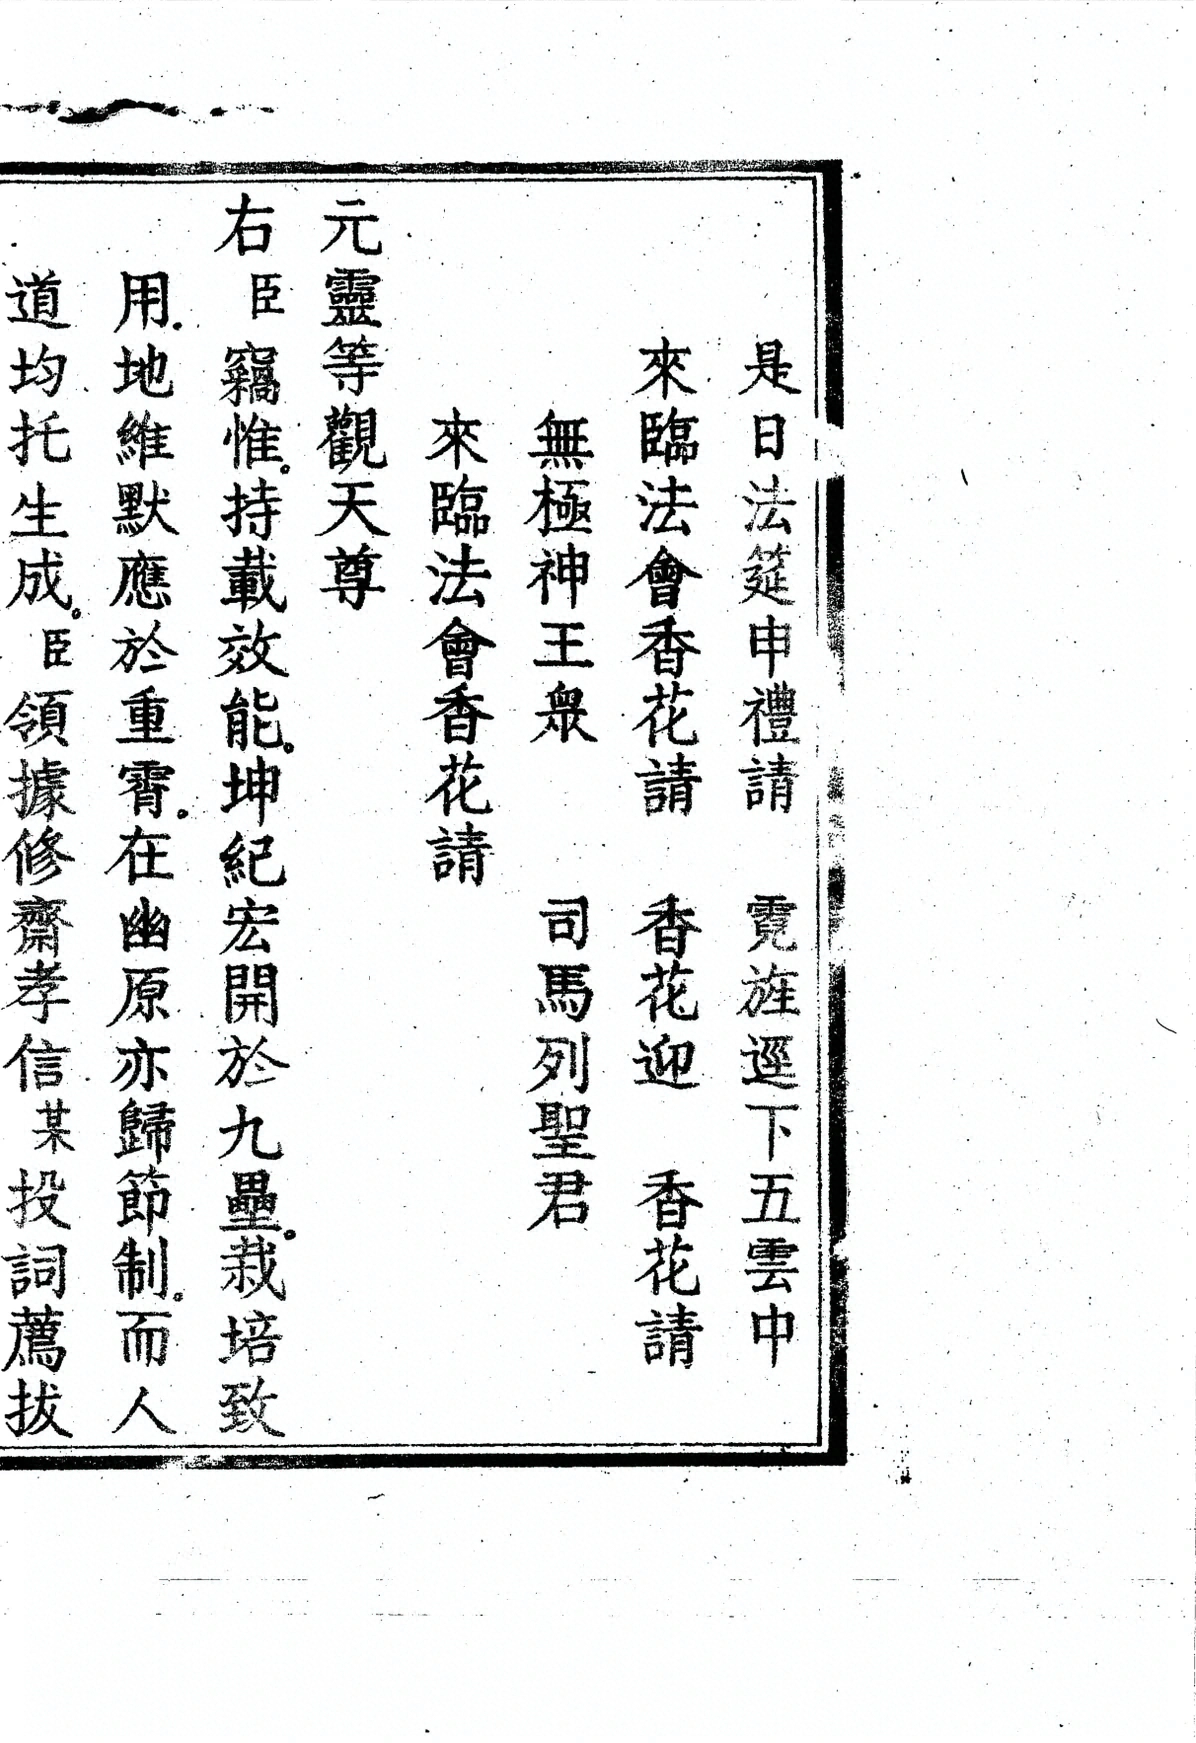 是日法筵申禮請　霓旌逕下五雲中
來臨法會香花請　香花迎　香花請
無極神王眾　司馬列聖君
來臨法會香花請
元靈等觀天尊
右臣竊惟。持載效能。坤紀宏開於九壘。栽培致
用。地維默應於重霄。在幽原亦歸節制。而人
道均托生成。臣領據修齋孝信某投詞薦拔